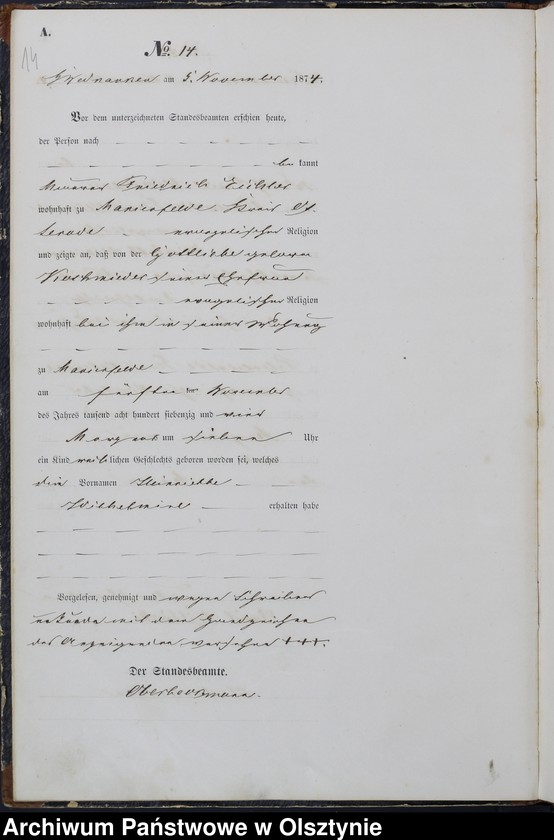 A.
14
No. 14.
am 5. November 1874.
Vor dem unterzeichneten Standesbeamten erschien heute,
der Person nach
be kannt
Friedrich
wohnhaft zu Marienfelde Kreis Os
terode evangelischer Religion
und zeigte an, daß von der Gottliebe geborene
seiner Ehefrau
evangelischer Religion
wohnhaft bei ihm in seiner Wohnung
zu Marienfelde
am fünften November
des Jahres tausend acht hundert siebenzig und vier
Morgens um sieben Uhr
ein Kind weib lichen Geschlechts geboren worden sei, welches
die Vornamen Henriette
Wilhelmine erhalten habe
Vorgelesen, genehmigt und wegen Schreibens
unkunde mit dem Handzeichen
des Anzeigenden versehen +++.
Der Standesbeamte.
Archiwum Państwowe w Olsztynie